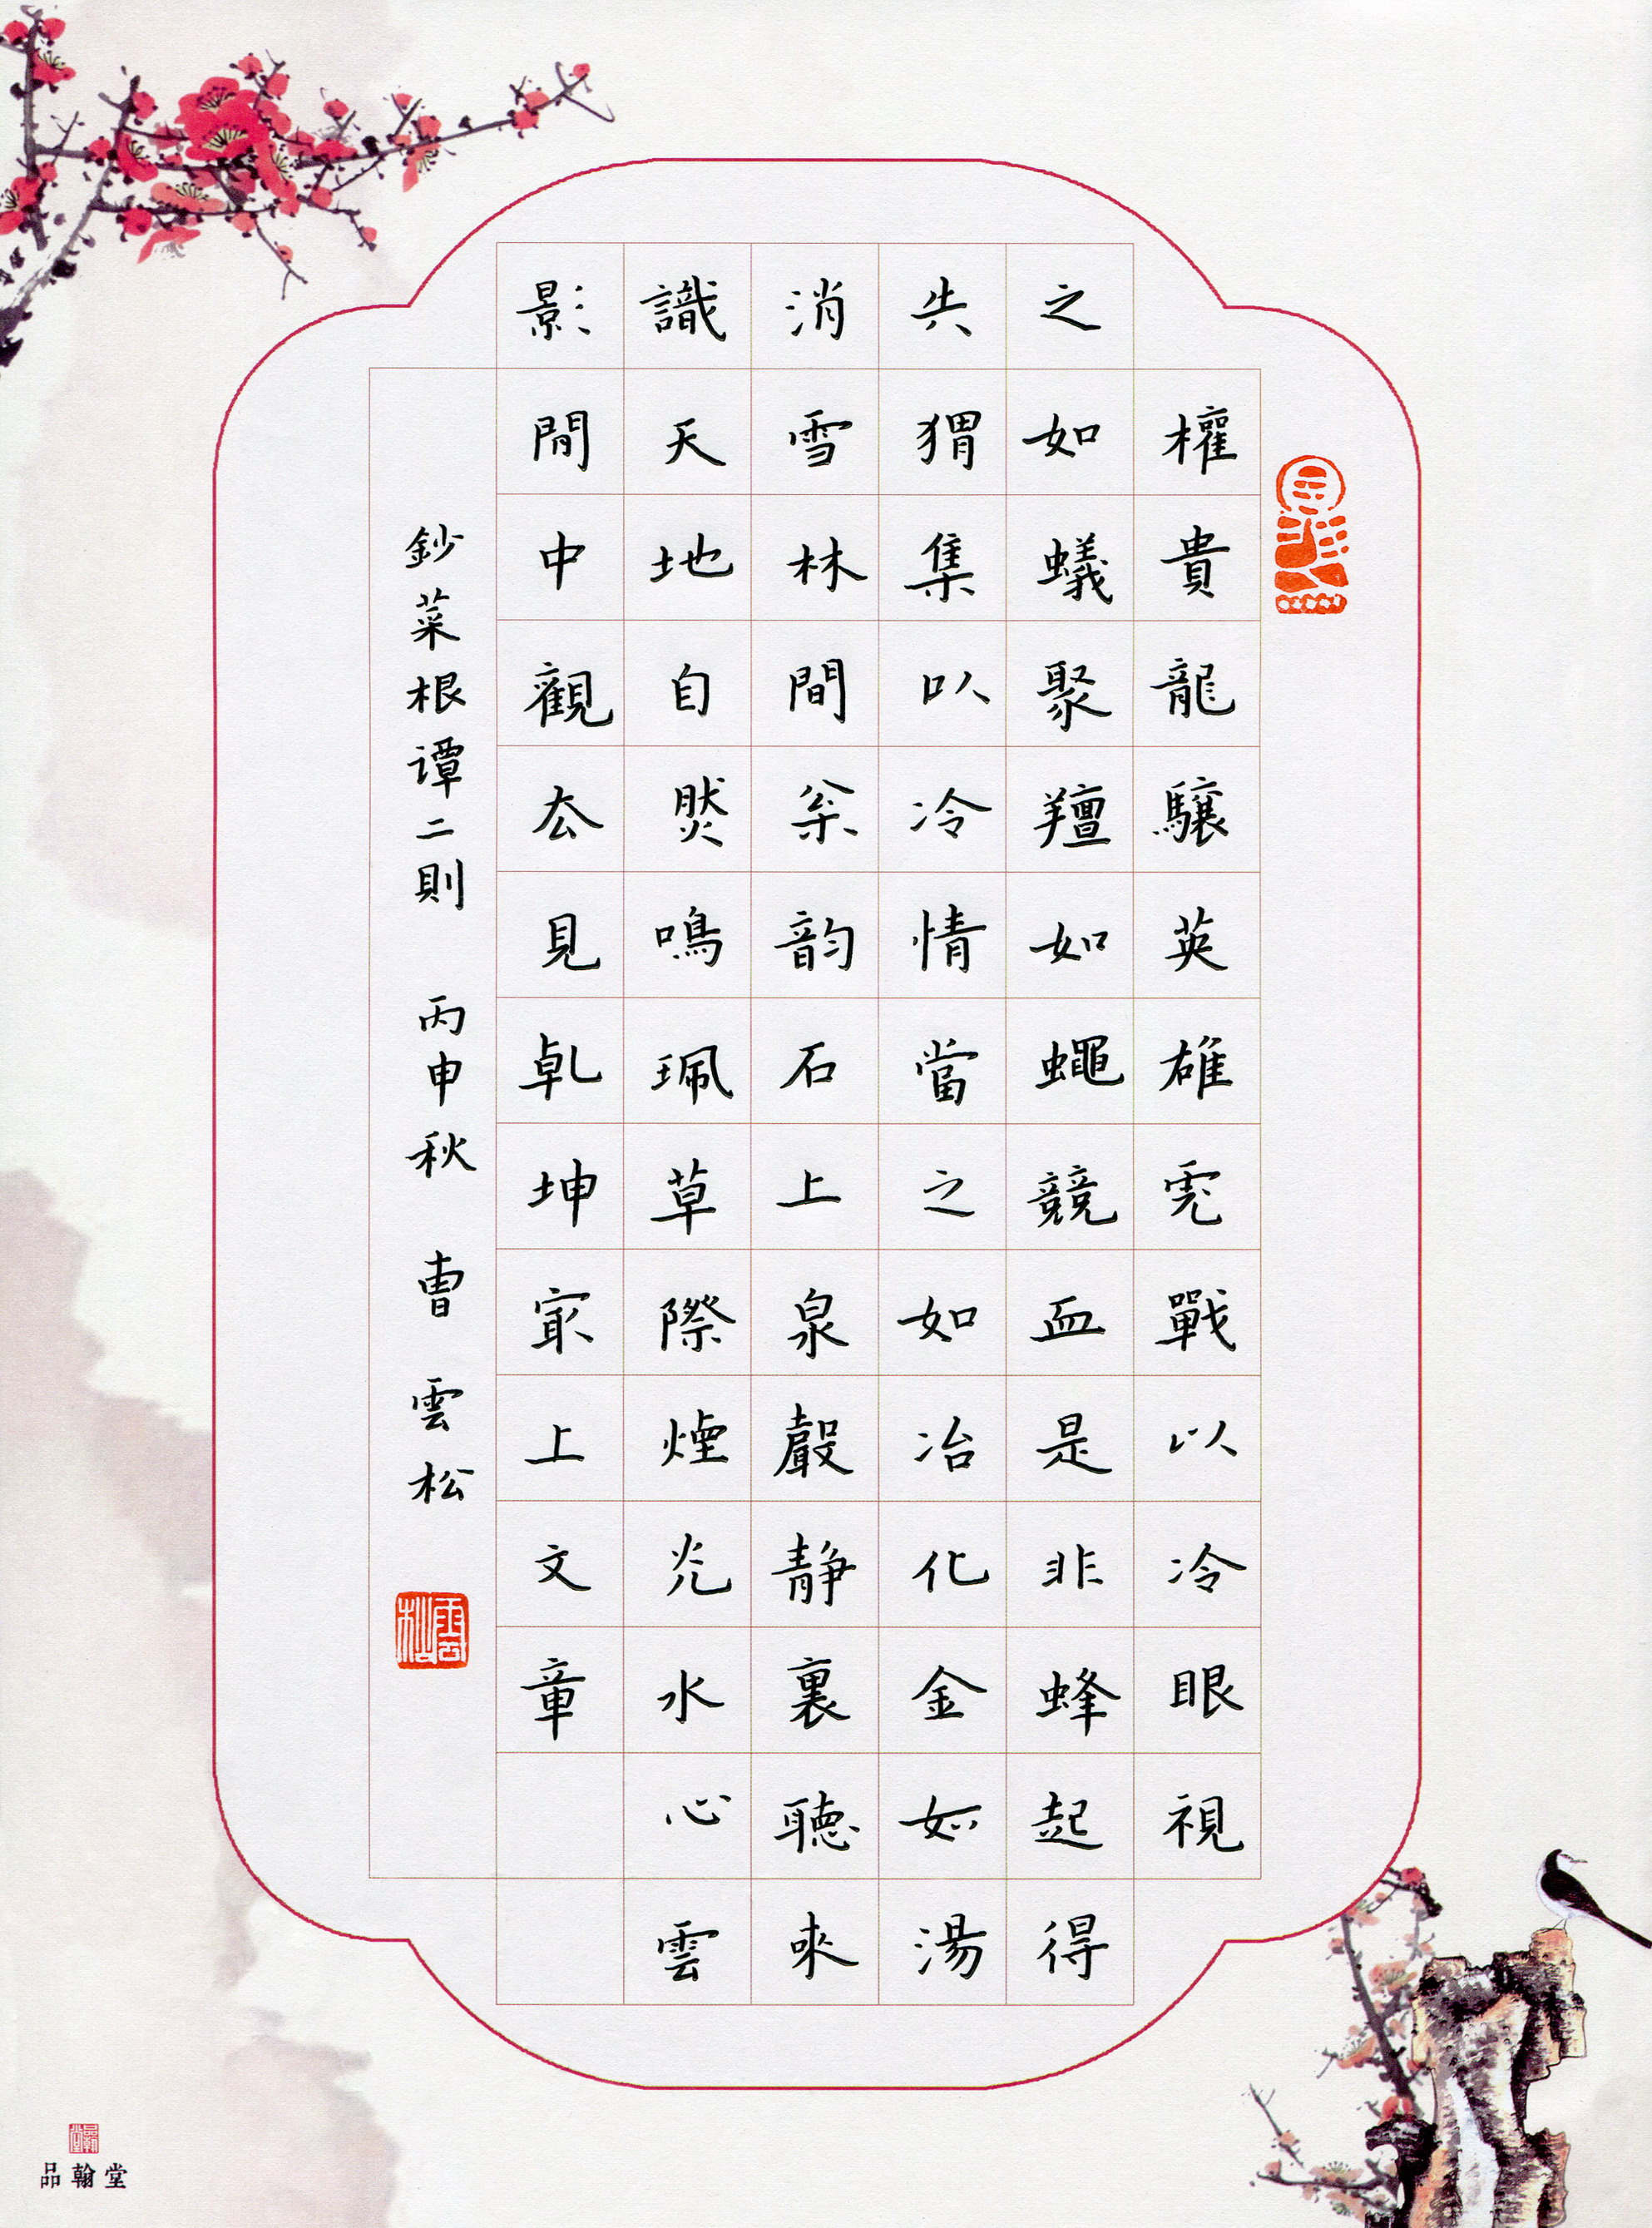 權貴龍驤英雄虎戰以冷眼視
之如蟻聚羶如蠅競血是非蜂起得
失猬集以冷情當之如冶化金如湯
消雪林間枩韵石上泉聲静裏聽來
識天地自然鳴珮草際煙光水心雲
影閒中觀去見乾坤最上文章
鈔菜根谭二則 丙申秋 曹雲松
雲松
品翰堂